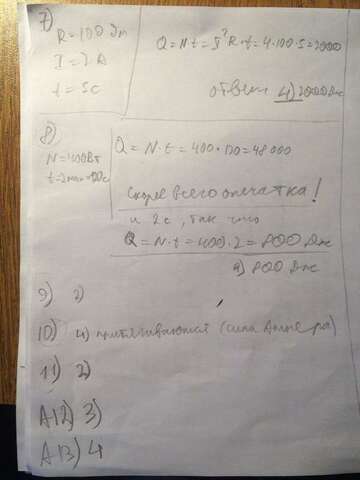 7)
R = 100 Ом
I = 2 А
t = 5с
Q = Nt = I²R·t = 4·100·5 = 2000
ответ 4) 2000 Дж
8)
N = 400Вт
t = 2мин = 120с
Q = N·t = 400·120 = 48000
Скорее всего опечатка!
и 2с, так что
Q = N·t = 400·2 = 800 Дж
а) 800 Дж
9) 2)
10) 4) притягиваются (сила Ампера)
11) 2)
А12) 3)
А13) 4